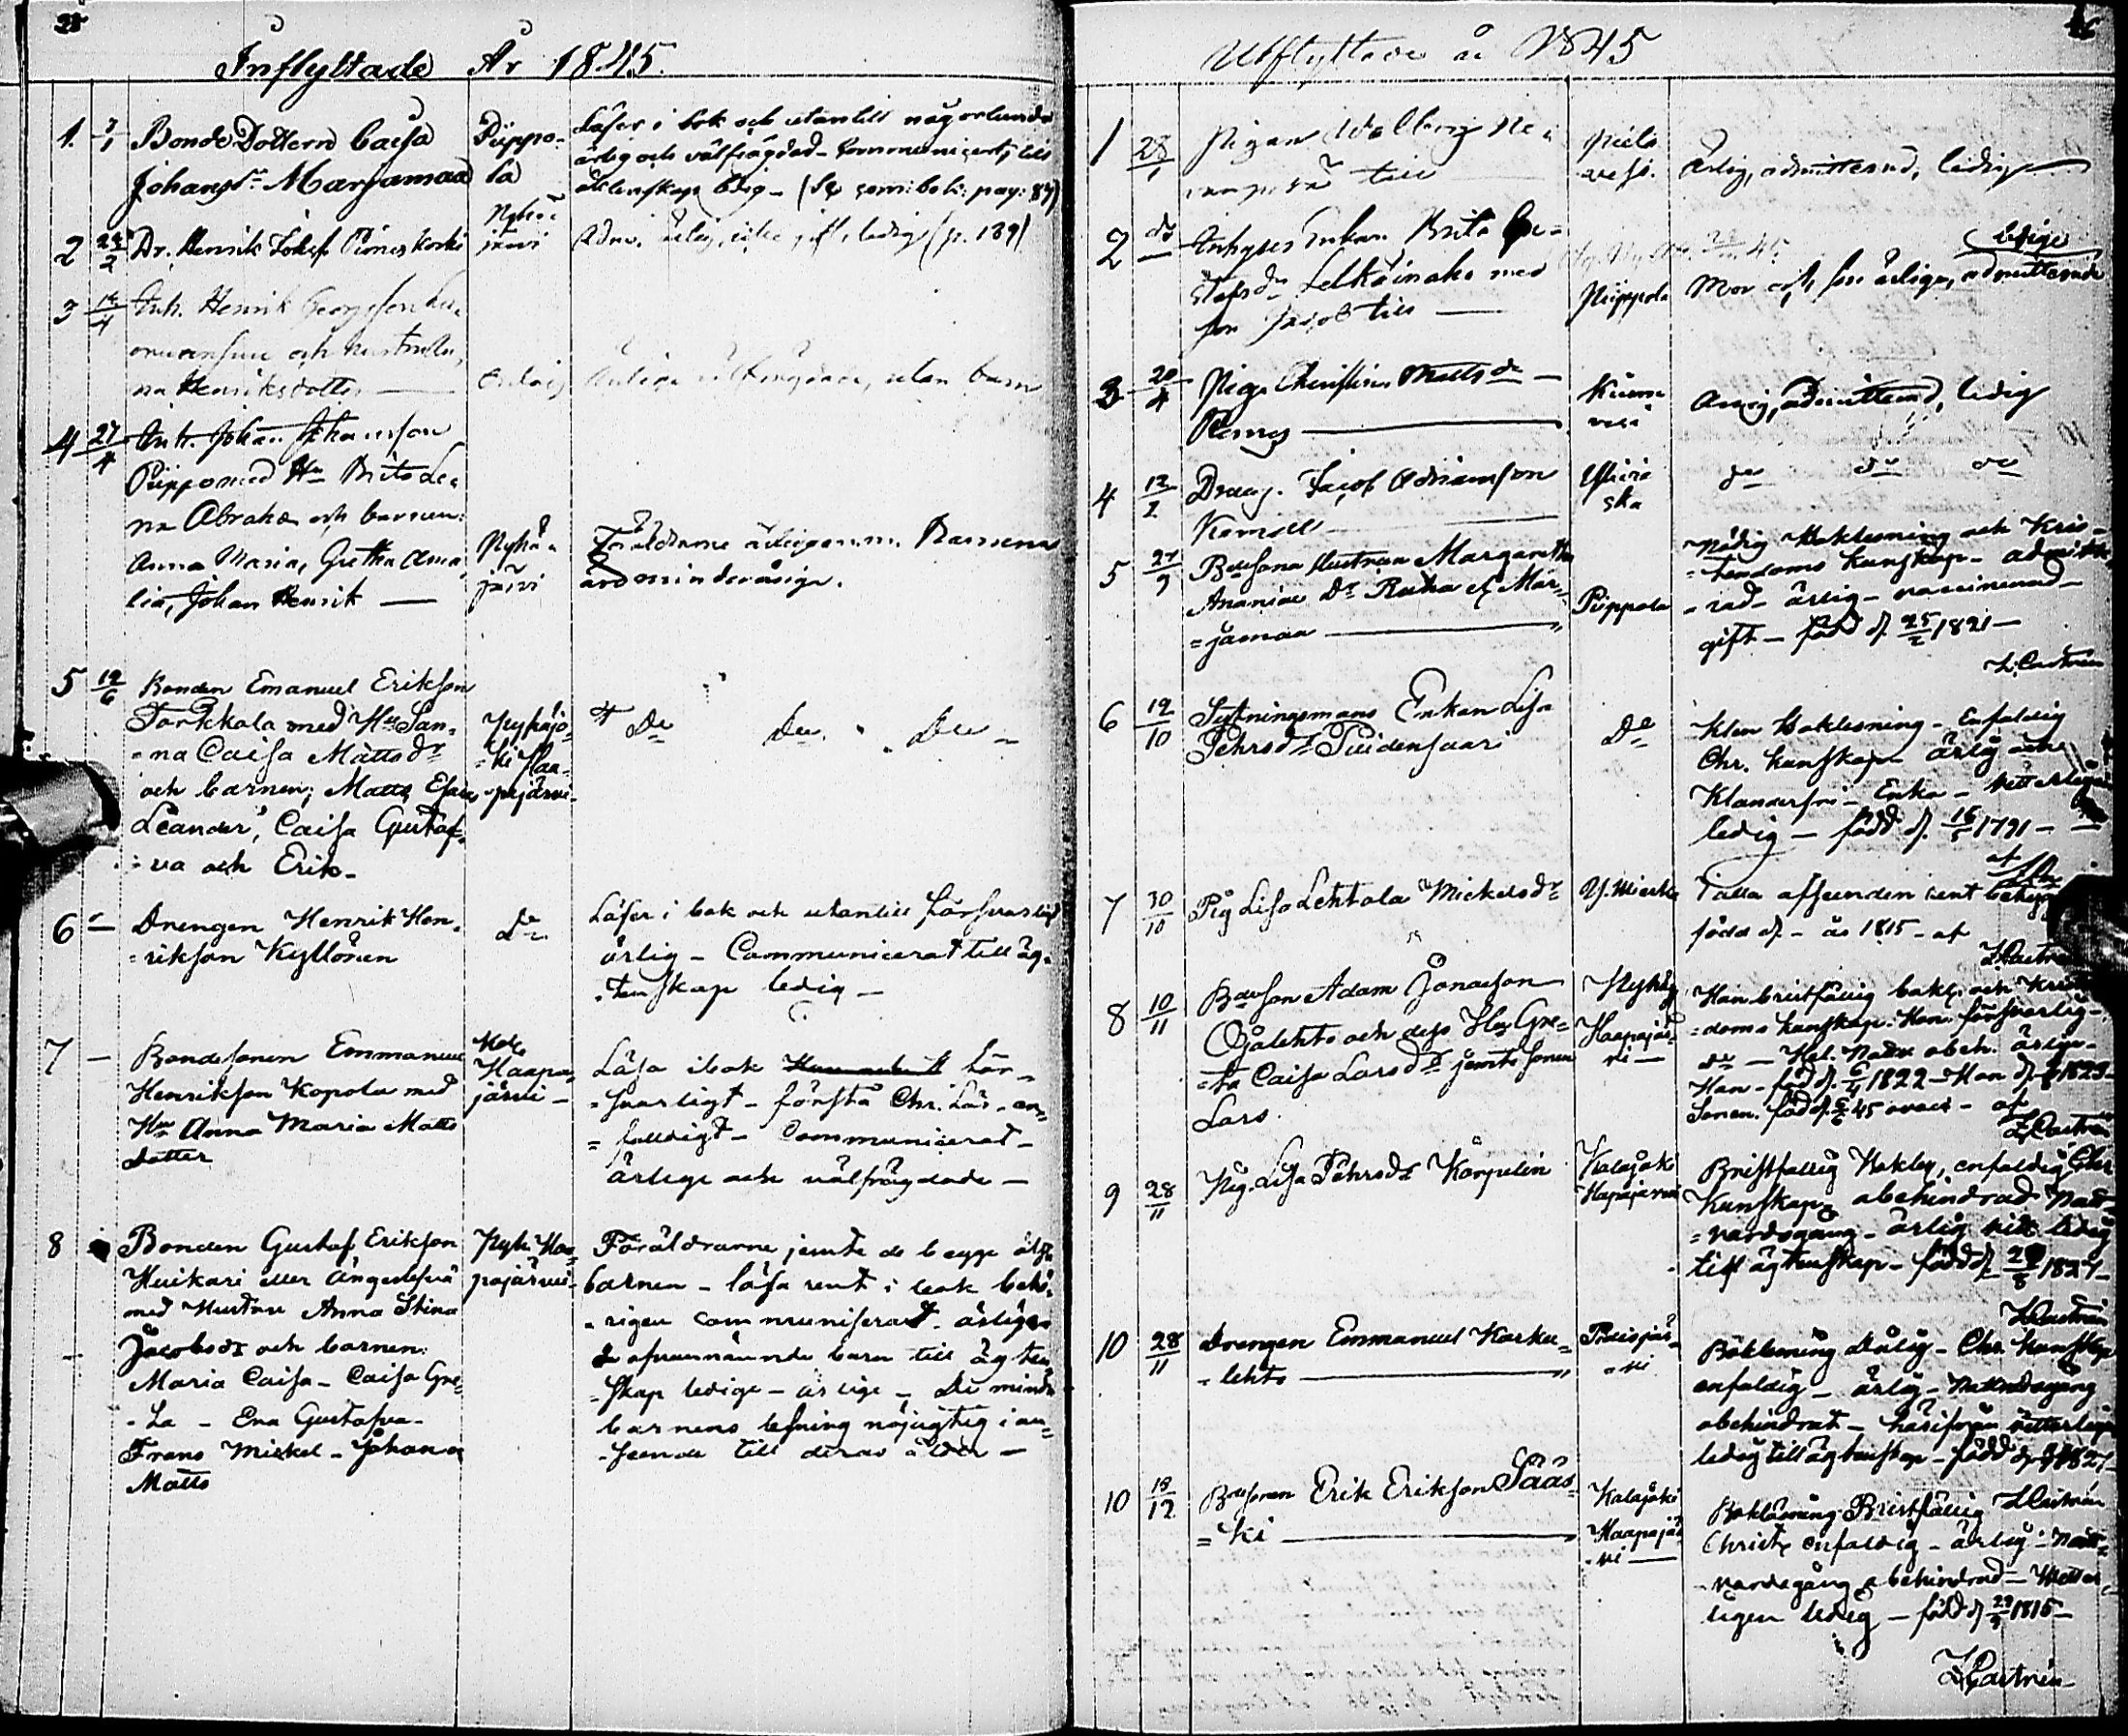 Inflyttade År 1845.
1. 7/1 Bonde Dottern Caisa
Johansdr Marjamaa
Piippo-
la
Läser i bok och utantill någorlunda
ärlig och välfrägdad - communicerat, till
äktenskap ledig - (Se com: bok: pag: 87)
2 24/2 Dr. Henrik Piones koski
Pyhä-
järvi
Adm. ärlig, icke gift, ledig (p. 139)
3 14/4 Inh. Henrik
och hustru
na Henriksdotter —
välfrägdade, utan barn
4 27/4 Inh. Johan Johansson
Piippo med Hu Brita Le-
na Abrahs och barnen:
Anna Maria, Gretha Ama-
lia, Johan Henrik —
Pyhä-
järvi
Föräldrarne ärlige m.m. Barnena
äro minderåriga.
5 19/6 Bonden Emanuel Erikson
Torkkola med Hu San-
-na Caisa Mattsdr
och barnen; Matts Esaias
Leander, Caisa Gustaf-
-va och Erik-
Pyhäjo-
-ki Haa-
-pajärvi-
Do Do Do -
6 — Drengen Henrik Hen-
-rikson Kyllönen
do
Läser i bok och utantill försvarligt
ärlig - Communicerat till äg-
-tenskap ledig -
7 — Bondesonen Emmanuel
Henrikson Kopola med
Hu Anna Maria Matts
dotter
Haapa-
järvi -
Läsa i bok för-
-svarligt - förstå Chr. Lär - en-
-faldigt - Communicerat -
ärlige och välfrägdade -
8 Bonden Gustaf Erikson
Huikari eller Ängeslevä
med Hustru Anna Stina
Jacobsdr och barnen:
Maria Caisa - Caisa Gre-
-ta - Eva Gustafva -
Frans Mickel - Johan o
Matts
Pyh. Haa-
pajärvi-
Föräldrarne jemte de begge äldre
barnen - läsa rent i bok behö-
-rigen communiserat - ärlige
de ofvannämnde barn till ägten-
-skap ledige - ärlige - De mindre
barnens lesning nöjagtig i an-
-seende till deras ålder -
Utflyttade år 1845
1 28/1 Pigan Wallborg
till
Pielavesi.
Ärlig, admitterad, ledig
2 do Inhyses Enkan Brita Gu-
stafsdr Leskäinaho med
son Jacob till —
Piippola
ledige
Mor och son ärliga, admitterade
3 20/4 Piga Christina Mattsdr —
Remes —
Kiuru
vesi
Ärlig, admitterad, ledig
4 12/2 Dreng. Jacob Adriamson
—
Ylivieska
do do do
5 27/9 Bdesona Hustrun Margaretha
Ananiae Dr Ruha el Mar-
=jamaa —
Piippola
Nödig Boklesning och Kris-
=tendoms kunskap - admitte-
-rad - ärlig - vaccinerad -
gift - född d. 25/2 1821 —
L. Castrén
6 12/10 Sytningsmans Enkan Lisa
Pehrsdr Puidensaari
Do
Klen Boklesning - Enfaldig
Chr. kunskap - ärlig och
Klanderfri - Enka - vetterligen
ledig - född d. 16/5 1791 - —
af
7 30/10 Pig Lisa Lehtola Mickelsdr
I alla afseenden rent
född d. - år 1815 - af
L. Castrén
8 10/11 Bdeson Adam Jonasson
Ojalehto och dess Hu Gre-
=ta Caisa Larsdr jemte Sonen
Lars
Haapajär-
vi —
Han bristfällig bokl. och
=doms kunskap. Hon försvarlig -
do — Hel. Nattv. obeh. ärliga -
Han - född d. 6/4 1822 - Hon 1823
Sonen född d. 45 - af
L. Castrén
9 28/11 Pig. Lisa Pehrsdr Karpelin
Kalajoki
Hapajärvi
Bristfällig Bokles, enfaldig Chr
Kunskap - obehindrad Natt-
=vardsgång - ärlig ledig
till ägtenskap - född d. 1827 -
L. Castrén
10 28/11 Drengen Emmanuel Karku-
-lehto —
Pidisjär-
-vi
Boklesning Dålig - Chr. Kunskap
enfaldig - ärlig - Nattvardsgång
obehindrat - härifrån vetterligen
ledig till ägtenskap - född d.
L. Castrén
10 19/12 Bdesonen Erik Erikson Sääs-
=ki —
Kalajoki
Haapajär-
-vi —
Bokläsning Bristfällig
Christ. enfaldig - ärlig - Natt-
-vardsgång obehindrad - Vetter-
ligen ledig - född d. 29/9 1815 -
L. Castrén